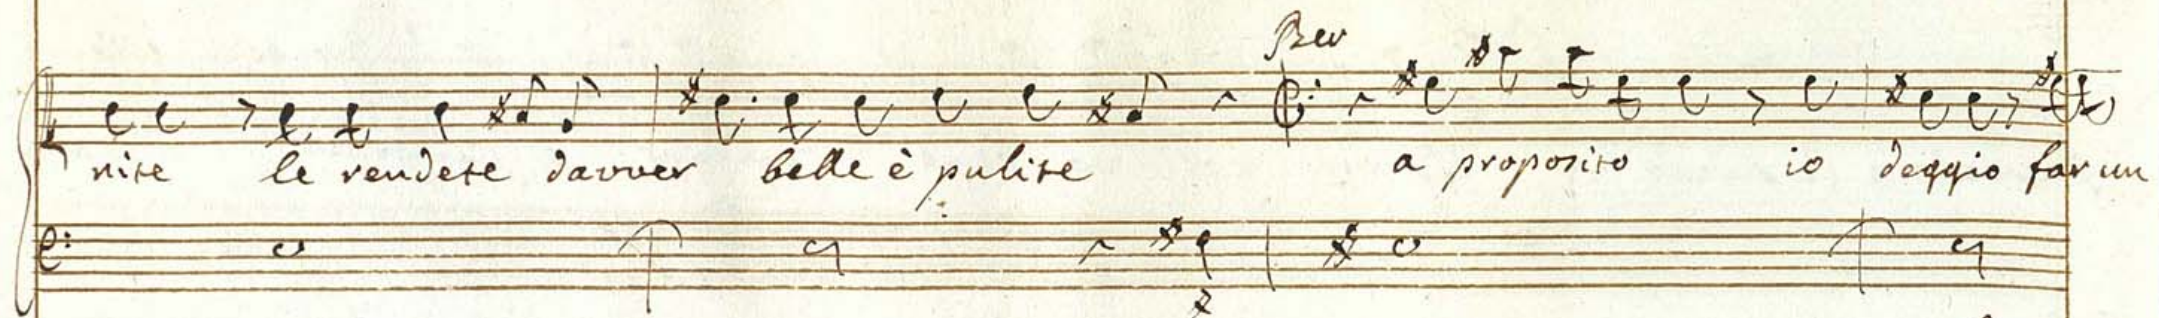 Ber
nite le rendete davver belle è pulite a proposito io deggio far un